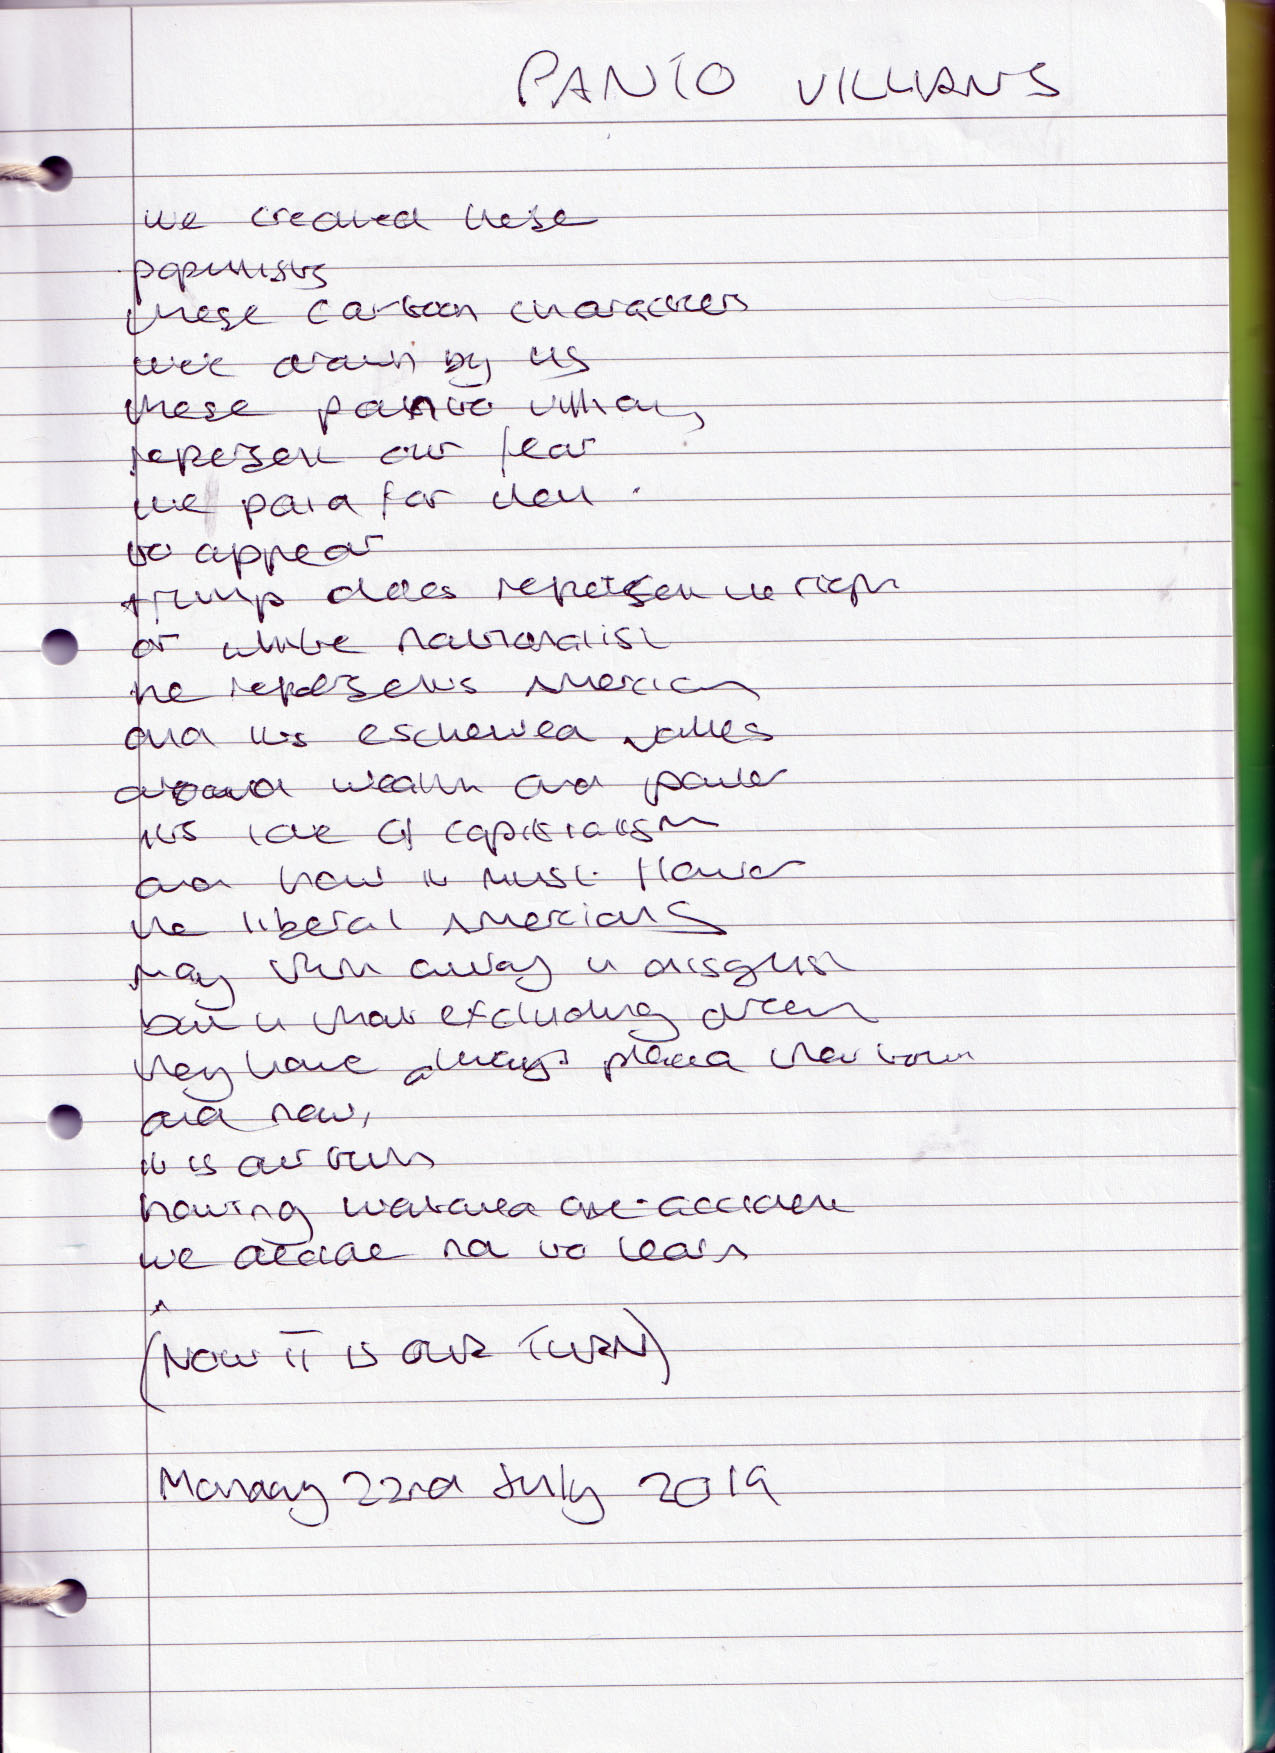 PANTO VILLIANS
we created these
populists
these cartoon characters
were drawn by us
these panto villians
represent our fear
we paid for them
to appear
trump does represent the right
or white nationalist
he represents American
and its eschewed values
around wealth and power
its love of capitalism
and how it must flower
the liberal Americans
may turn away in disgust
but in that excluding dream
they have always placed their
and now,
it is our turn
having watched one accident
we decide not to learn
^
(NOW IT IS OUR TURN)
Monday 22nd July 2019